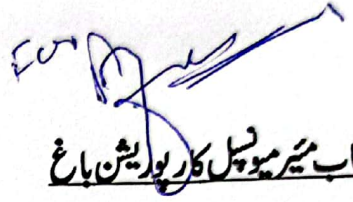 اب مئیر میونسپل کارپوریشن باغ